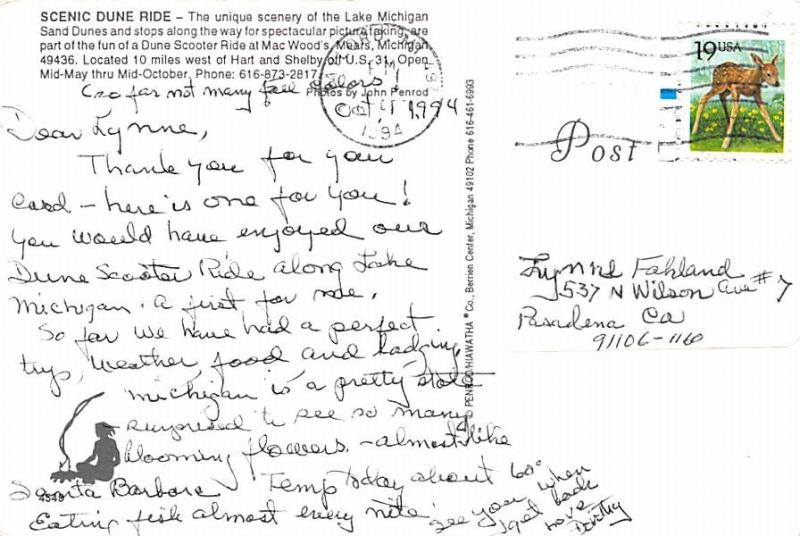 SCENIC DUNE RIDE – The unique scenery of the Lake Michigan
Sand Dunes and stops along the way for spectacular picture taking, are
part of the fun of a Dune Scooter Ride at Mac Wood's, Mears, Michigan
49436. Located 10 miles west of Hart and Shelby off U.S. 31. Open
Mid-May thru Mid-October, Phone: 616-873-2817.
Photos by John Penrod
(so far not many fall colors)
Oct 11, 1994
1994
Dear Lynne,
Thank you for your
card – here is one for you!
You would have enjoyed our
Dune Scooter Ride along Lake
Michigan. A first for me.
So far we have had a perfect
trip, weather, food and lodging.
Michigan is a pretty state
– surprised to see so many
blooming flowers – almost like
Santa Barbara Temp today about 60°
Eating fish almost every nite
See you when
I get back
Love
Dorothy
© PENROD/HIAWATHA Co., Berrien Center, Michigan 49102 Phone 616-461-6993
19 USA
Post
Lynne Fahland
537 N Wilson Ave #7
Pasadena Ca
91106-116